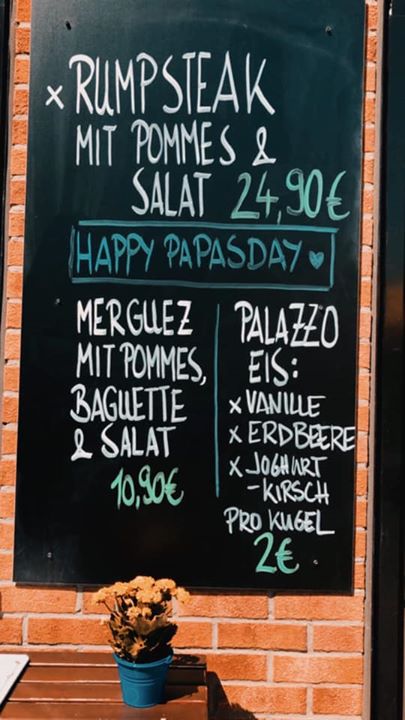 x RUMPSTEAK
MIT POMMES &
SALAT 24,90€
HAPPY PAPASDAY ♥
MERGUEZ
MIT POMMES,
BAGUETTE
& SALAT
10,90€
PALAZZO
EIS:
x VANILLE
x ERDBEERE
x JOGHURT
-KIRSCH
PRO KUGEL
2€